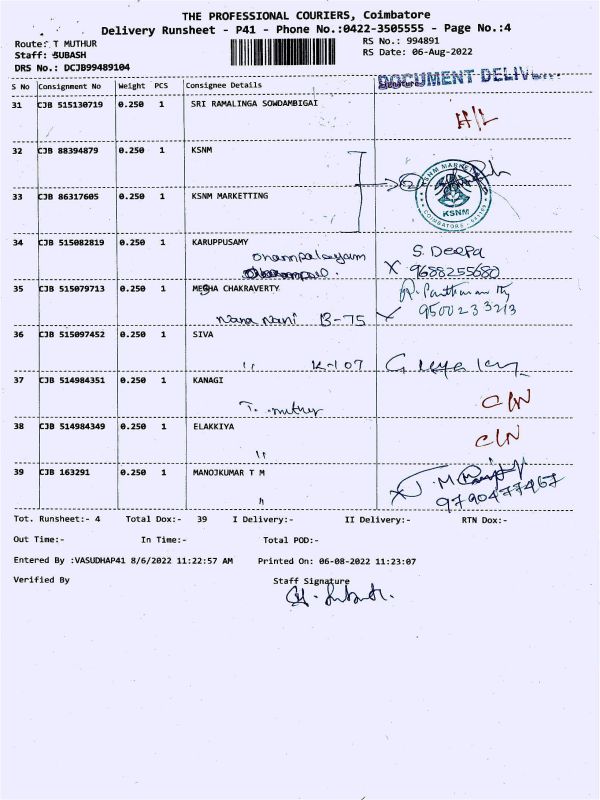 THE PROFESSIONAL COURIERS, Coimbatore
Delivery Runsheet - P41 - Phone No.:0422-3505555 - Page No.:4
Route: T MUTHUR
RS No.: 994891
Staff: SUBASH
RS Date: 06-Aug-2022
DRS No.: DCJB99489104
DOCUMENT DELIV
S No Consignment No Weight PCS Consignee Details Signature
31 CJB 515130719 0.250 1 SRI RAMALINGA SOWDAMBIGAI
H/L
32 CJB 88394879 0.250 1 KSNM
KSNM MARKE
KSNM
COIMBATORE
33 CJB 86317605 0.250 1 KSNM MARKETTING
34 CJB 515082819 0.250 1 KARUPPUSAMY
S. Deepa
9688255680
35 CJB 515079713 0.250 1 MEGHA CHAKRAVERTY
Nana Nani B-75
9500233213
36 CJB 515097452 0.250 1 SIVA
" K-107
37 CJB 514984351 0.250 1 KANAGI
C/N
T. muthur
38 CJB 514984349 0.250 1 ELAKKIYA
C/N
"
39 CJB 163291 0.250 1 MANOJKUMAR T M
"
9790477467
Tot. Runsheet:- 4 Total Dox:- 39 I Delivery:- II Delivery:- RTN Dox:-
Out Time:- In Time:- Total POD:-
Entered By :VASUDHAP41 8/6/2022 11:22:57 AM Printed On: 06-08-2022 11:23:07
Verified By Staff Signature